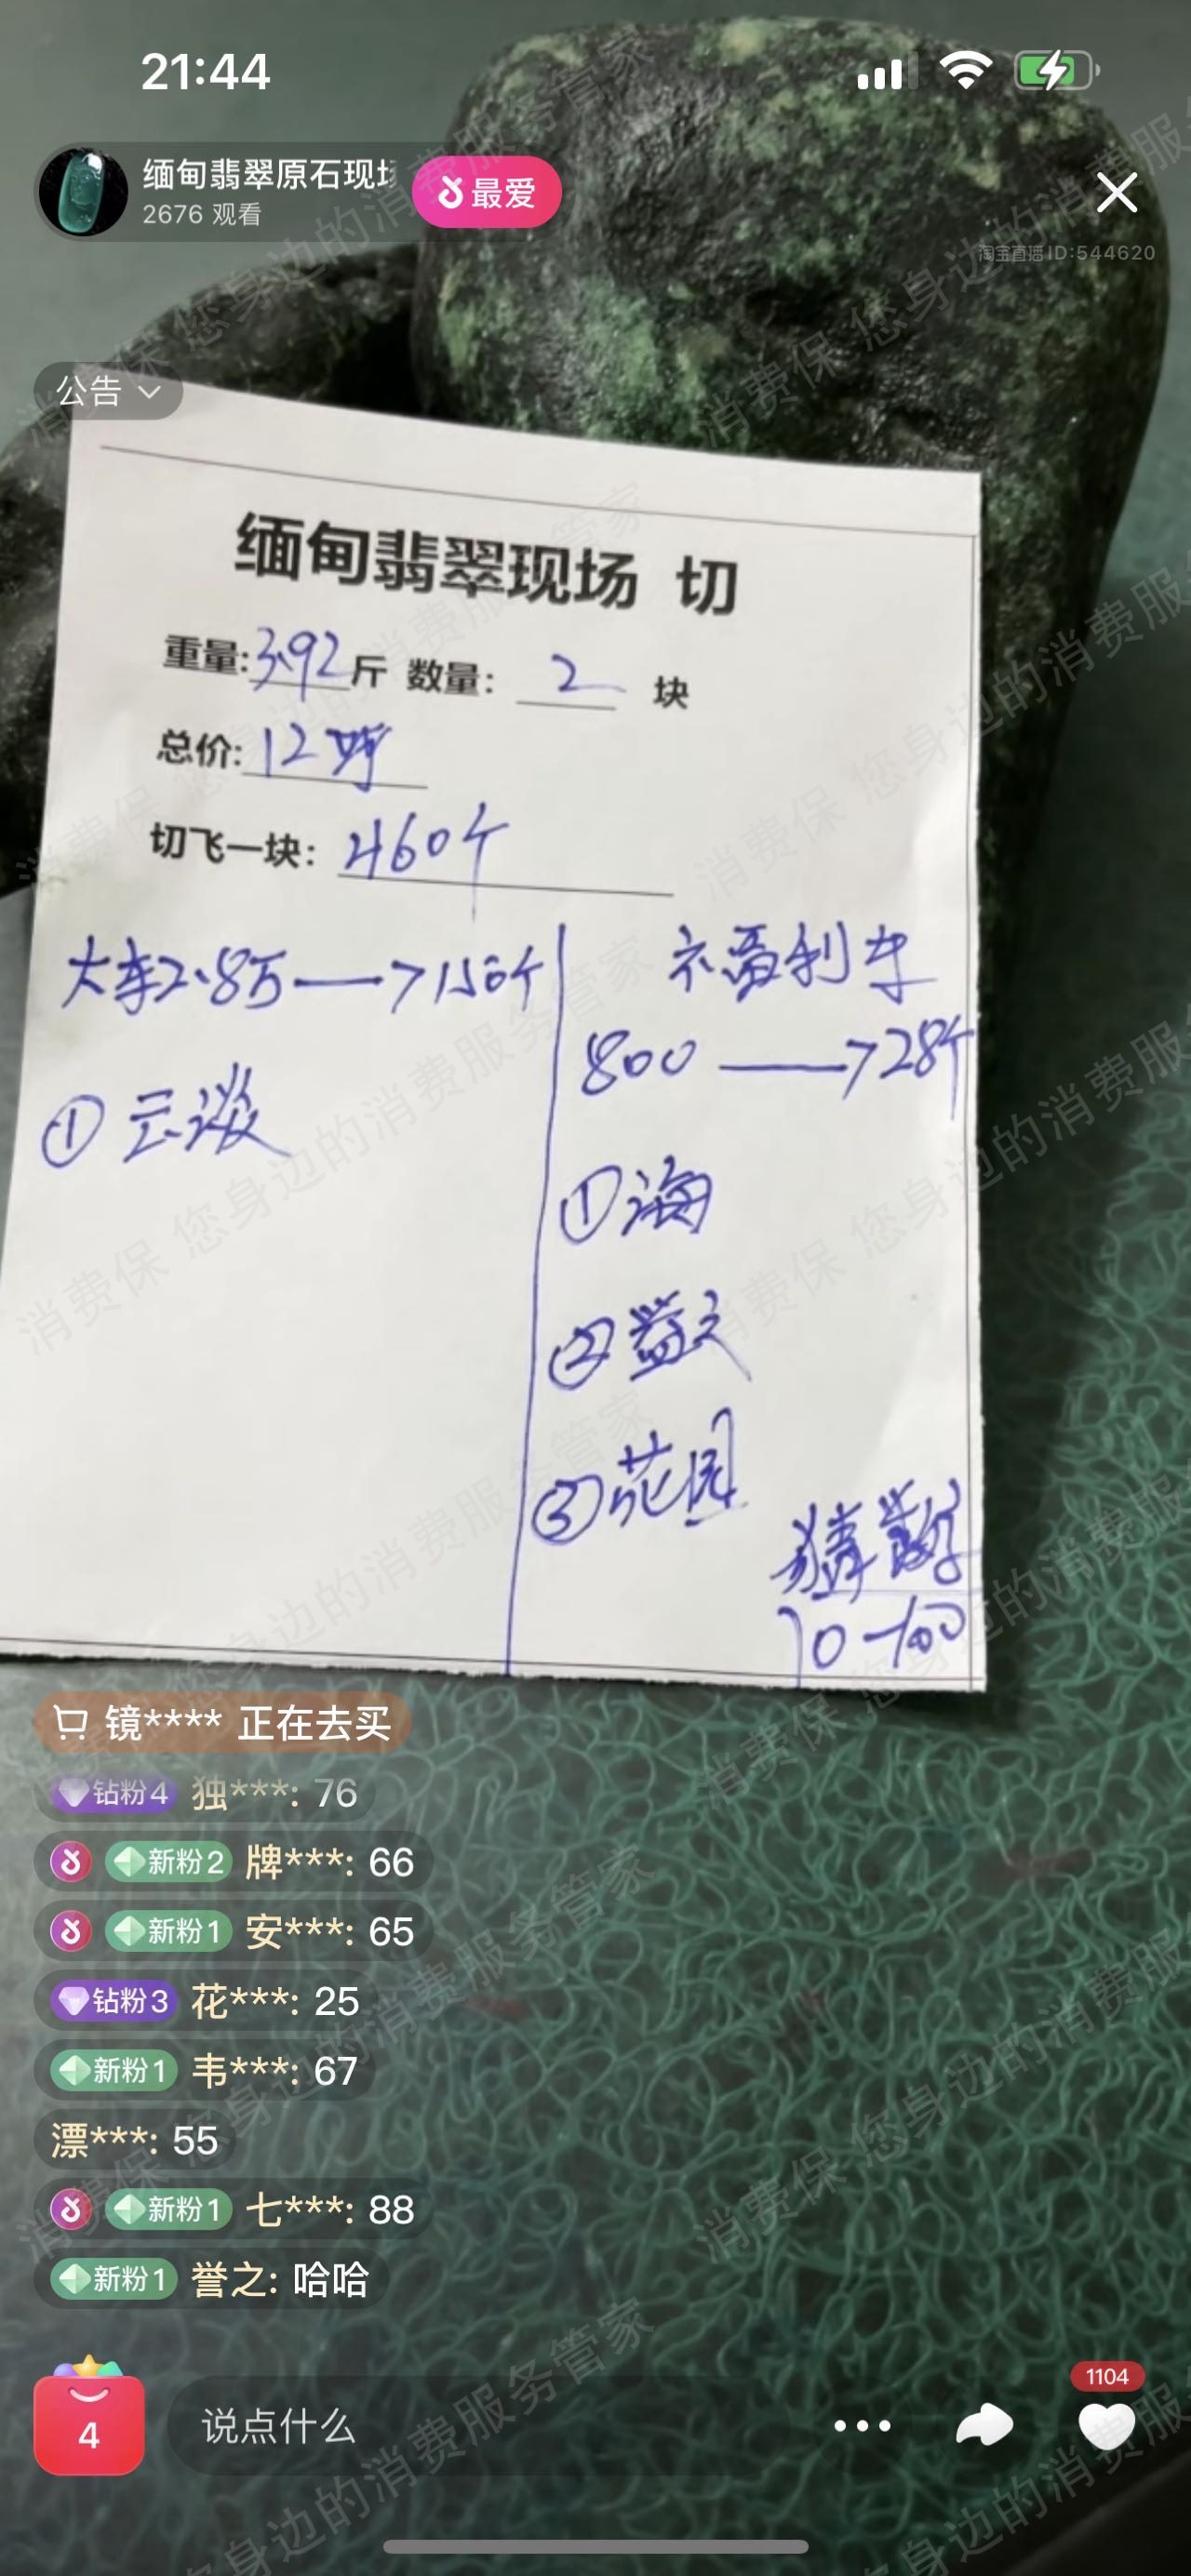 21:44
缅甸翡翠原石现场
2676 观看
最爱
淘宝直播ID:544620
公告
缅甸翡翠现场 切
重量:3.92斤 数量: 2 块
总价:12.8万
切飞一块: 460个
大车2.8万—>150个
① 云淡
不盈利车
800 —>28个
①海
②誉之
③花园
猜数字
70-100
镜**** 正在去买
钻粉4 独***: 76
新粉2 牌***: 66
新粉1 安***: 65
钻粉3 花***: 25
新粉1 韦***: 67
漂***: 55
新粉1 七***: 88
新粉1 誉之: 哈哈
4
说点什么
1104
消费保 您身边的消费服务管家